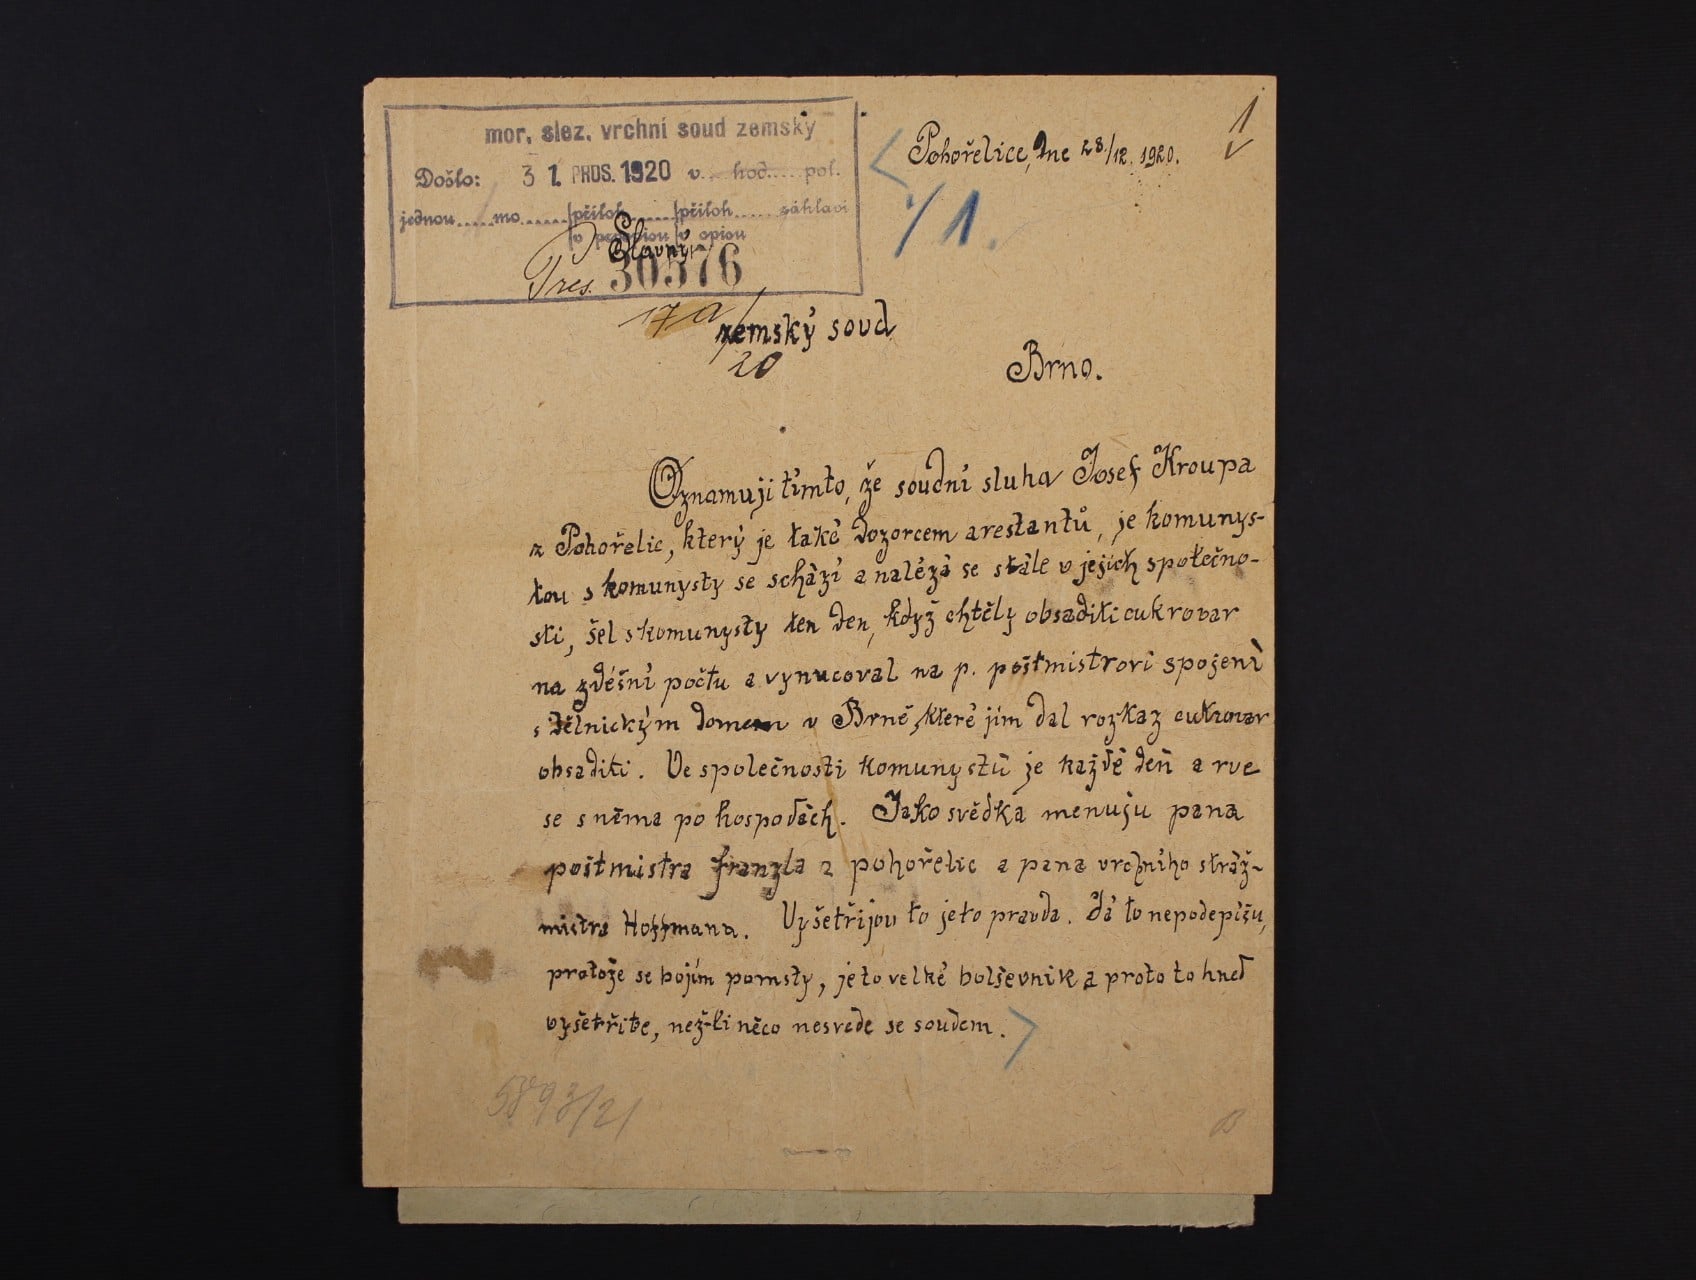 1
mor. slez. vrchní soud zemský
Pohořelice, dne 28/12. 1920.
Došlo: 31. PROS. 1920 v.....hod.....pol.
jednou.....mo......příloh......příloh......záhlaví
1.
Slavný
Pres. 30576
17a/20
zemský soud
Brno.
Oznamuji tímto, že soudní sluha Josef Kroupa
z Pohořelic, který je také dozorcem arestantů, je komunys-
tou s komunysty se schází a nalézá se stále v jejich společno-
sti, šel s komunysty ten den, když chtěly obsaditi cukrovar
na zdéšní počtu a vynucoval na p. poštmistrovi spojení
s Dělnickým domem v Brně, které jim dal rozkaz cukrovar
obsaditi. Ve společnosti komunystů je každé deň a rve
se s něma po hospodách. Jako svědka menuju pana
poštmistra Franzla z pohořelic a pana vrchního stráž-
mistra Hoffmana. Vyšetřijou to jeto pravda. Já to nepodepíšu,
protože se bojím pomsty, je to velké bolševnik a proto to hneď
vyšetřite, než-li něco nesvede se soudem.
5893/21